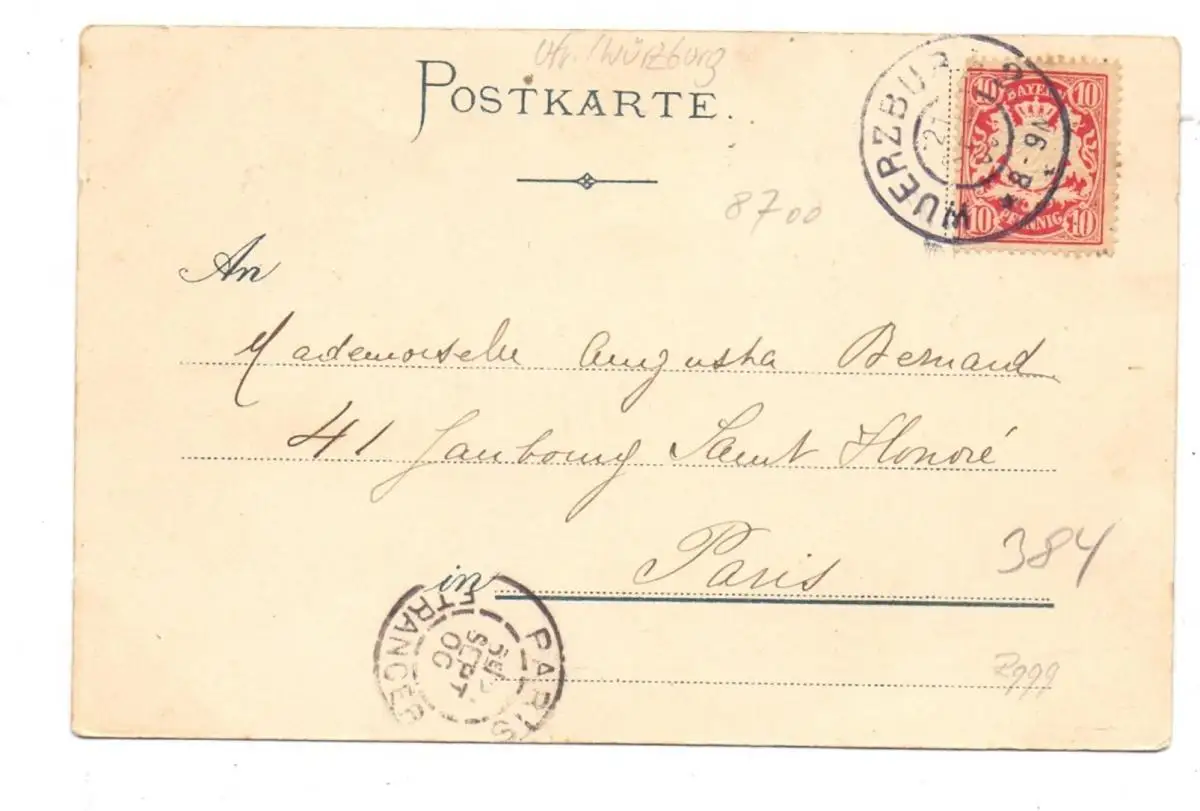 Ufr. / Würzburg
POSTKARTE.
WUERZBURG 2
21
8-9N.
10 10
BAYERN
PFENNIG
10 10
8700
An
Mademoiselle Augusta Bernard
41 Faubourg Saint Honoré
in Paris
384
PARIS ETRANGER
SEPT
00
Z999